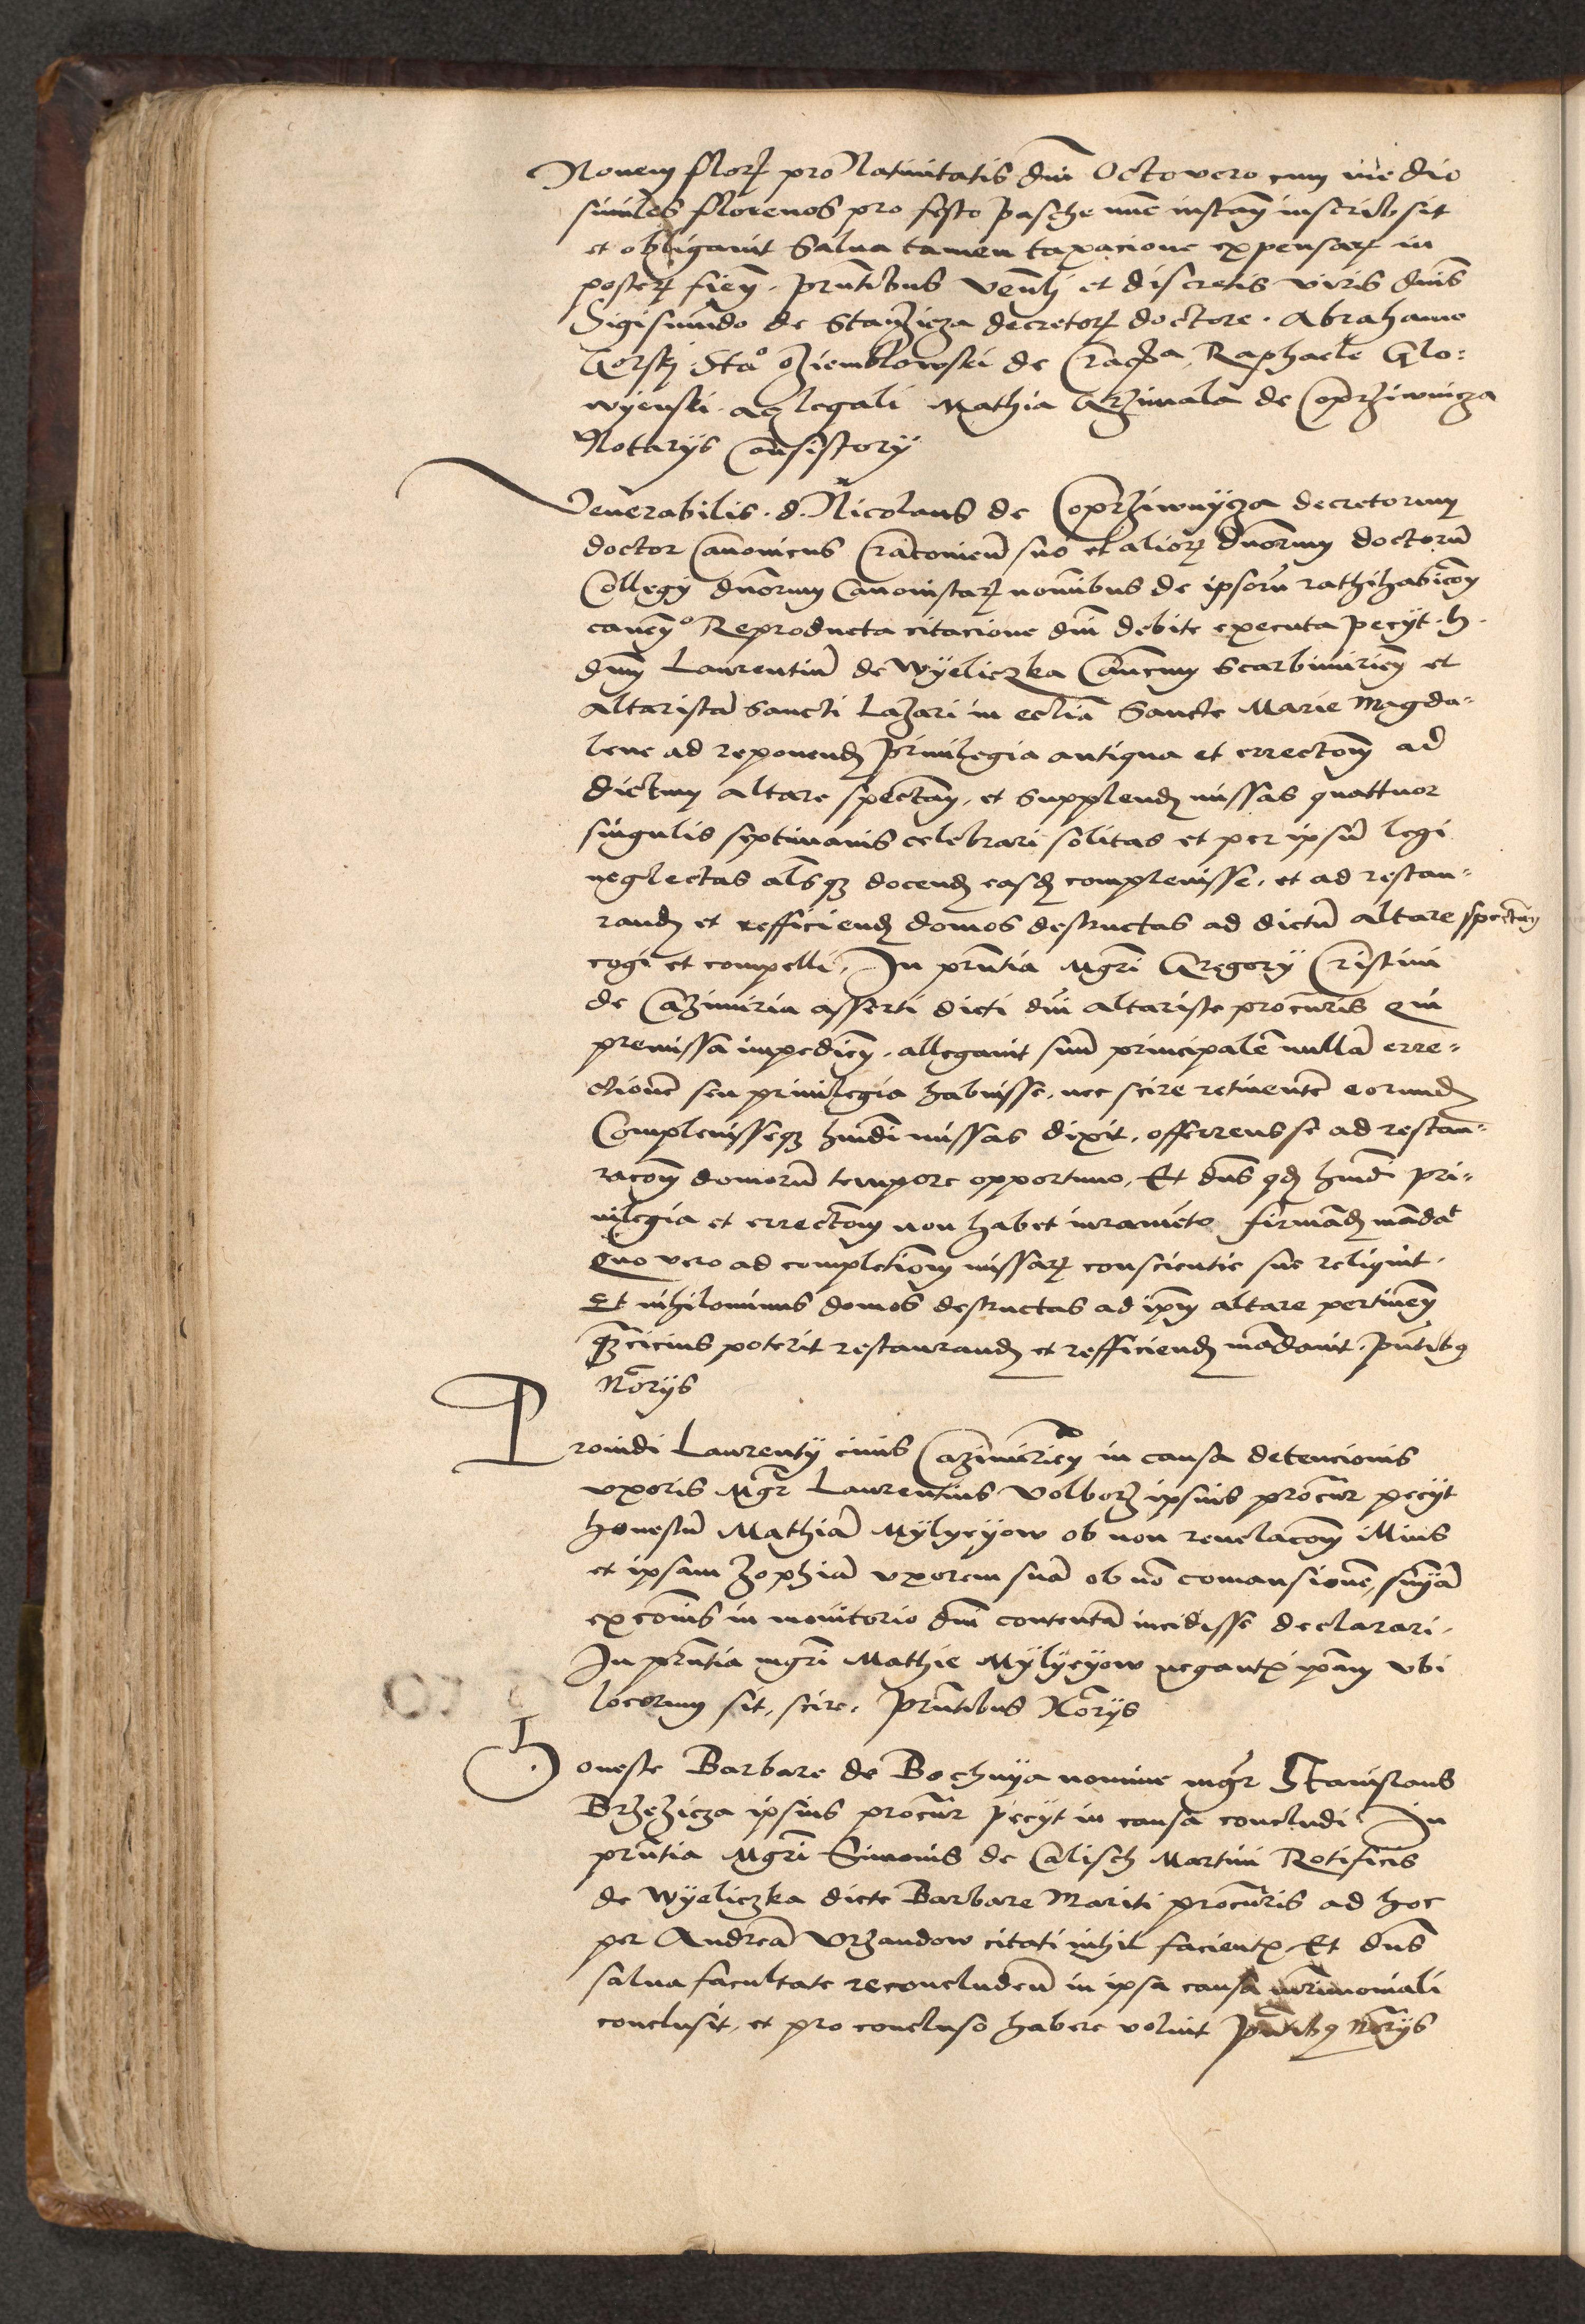 Nouem floꝝ pro Natiuitatis dni Octo vero cum medio
similes florenos pro festo pasche nunc instan inscribsit
et obligauit Salua tamen taxacione expensaꝝ in
posteꝝ fien. Pntibus venlj et discretis viris dnis
Sigismundo de Stanzicza decretoꝝ doctore. Abrahamo
Gorskj Stao Ziemblowski de Raphaele Glo:
wyenski. ac legali Mathia Grzimala de Coprziwnicza
Notarys Consistory
Venerabilis. d. Nicolaus de Coprziwnycza decretorum
doctor Canonicus Cracouien suo et alioꝝ dnorum doctorū
Collegy dnorum Canonistaꝝ nominibus de ipsorū rathihabicōn
cauen Reproducta citacione dni debite executa pecyt. h.
dnm Laurentiū de Wyeliczka Canncum Scarbimirien et
Altaristā Sancti Lazari in ecliā Sancte Marie Magda-
lene ad reponend priuilegia antiqua et errectōm ad
dictum altare spectan, et supplend missas quattuor
singulis septimanis celebrari solitas et per ipsū legi
neglectas alsqꝫ docend easd complevisse, et ad restau-
rand et refficiend domos destructas ad dictū altare spectan
cogi et compelli, In pntia Mgri Gregory Cristini
de Cazimiria asserti dicti dni altariste procuris Qui
premissa impedien, allegauit suū principalē nullā erre-
ctionē seu priuilegia habuisse, nec scire retinentē eorund
Complevisseqꝫ hmdi missas dixit, offerrens se ad restau-
racōm domorū tempore opportuno, Et dns qd hmdi pri-
uilegia et errectōm non habet iuramēto firmand mandat
Quo vero ad completiōm missaꝝ conscientie sue reliquit.
Et nihilominus domos destructas ad ipm altare pertinen
qꝫ cicius poterit restaurand et refficiend mādauit, pntibꝰ
Nōrys
Prouidi Laurenty ciuis Cazimirien in causa detencionis
vxoris Mgr Laurentius Volborz ipsius procur pecyt
honestū Mathiā Mylyeyow ob non reuelacōm illius
et ipsam Zophiā vxorem suā ob nō comansionē, sniā
excōnis in monitorio dni contentā incidisse declarari.
In pntia mgri Mathie Mylyeyow negantꝭ ipām vbi
locorum sit, scire, pntibus Nōrys
Honeste Barbare de Bochnya nomine mgr Stanislaus
Brzezicza ipsius procur pecyt in causa concludi In
pntia Mgri Simonis de Calisch Martini Rotificis
de Wyeliczka dicte Barbare Mariti procuris ad hoc
per Andreā Vrzandow citati nihil facientꝭ Et dns
salua facultate reconcludend in ipsa causa mrimoniali
conclusit, et pro concluso habere voluit pntibꝰ nōrys